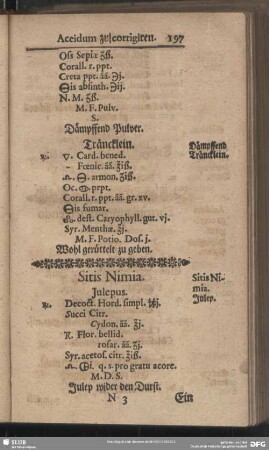 Acidum zu corrigiren. 197
Oss Sepiæ ʒß.
Corall. r. ppt.
Creta ppt. āā. ℈j.
🜔is absinth. ℈ij.
N. M. ʒß.
M. F. Pulv.
S.
Dämpffend Pulver.
Träncklein.
Dämpffend
Träncklein.
℞. ▽. Card. bened.
- Fœnic. āā. ℥iß.
armon. ʒiß.
Oc. prpt.
Corall. r. ppt. āā. gr. xv.
🜔is fumar.
dest. Caryophyll. gut. vj.
Syr. Menthæ. ℥j.
M. F. Potio. Dos. j.
Wohl gerüttelt zu geben.
Sitis Nimia.
Sitis Ni-
mia.
Julepus.
Julep.
℞. Decoct. Hord. simpl. ℔j.
Succi Citr.
Cydon. āā. ℥j.
Flor. bellid.
rosar. āā. ʒj.
Syr. acetos. citr. ℥iß.
q. s. pro gratu acore.
M. D. S.
Julep wider den Durst.
N 3 Ein
SLUB